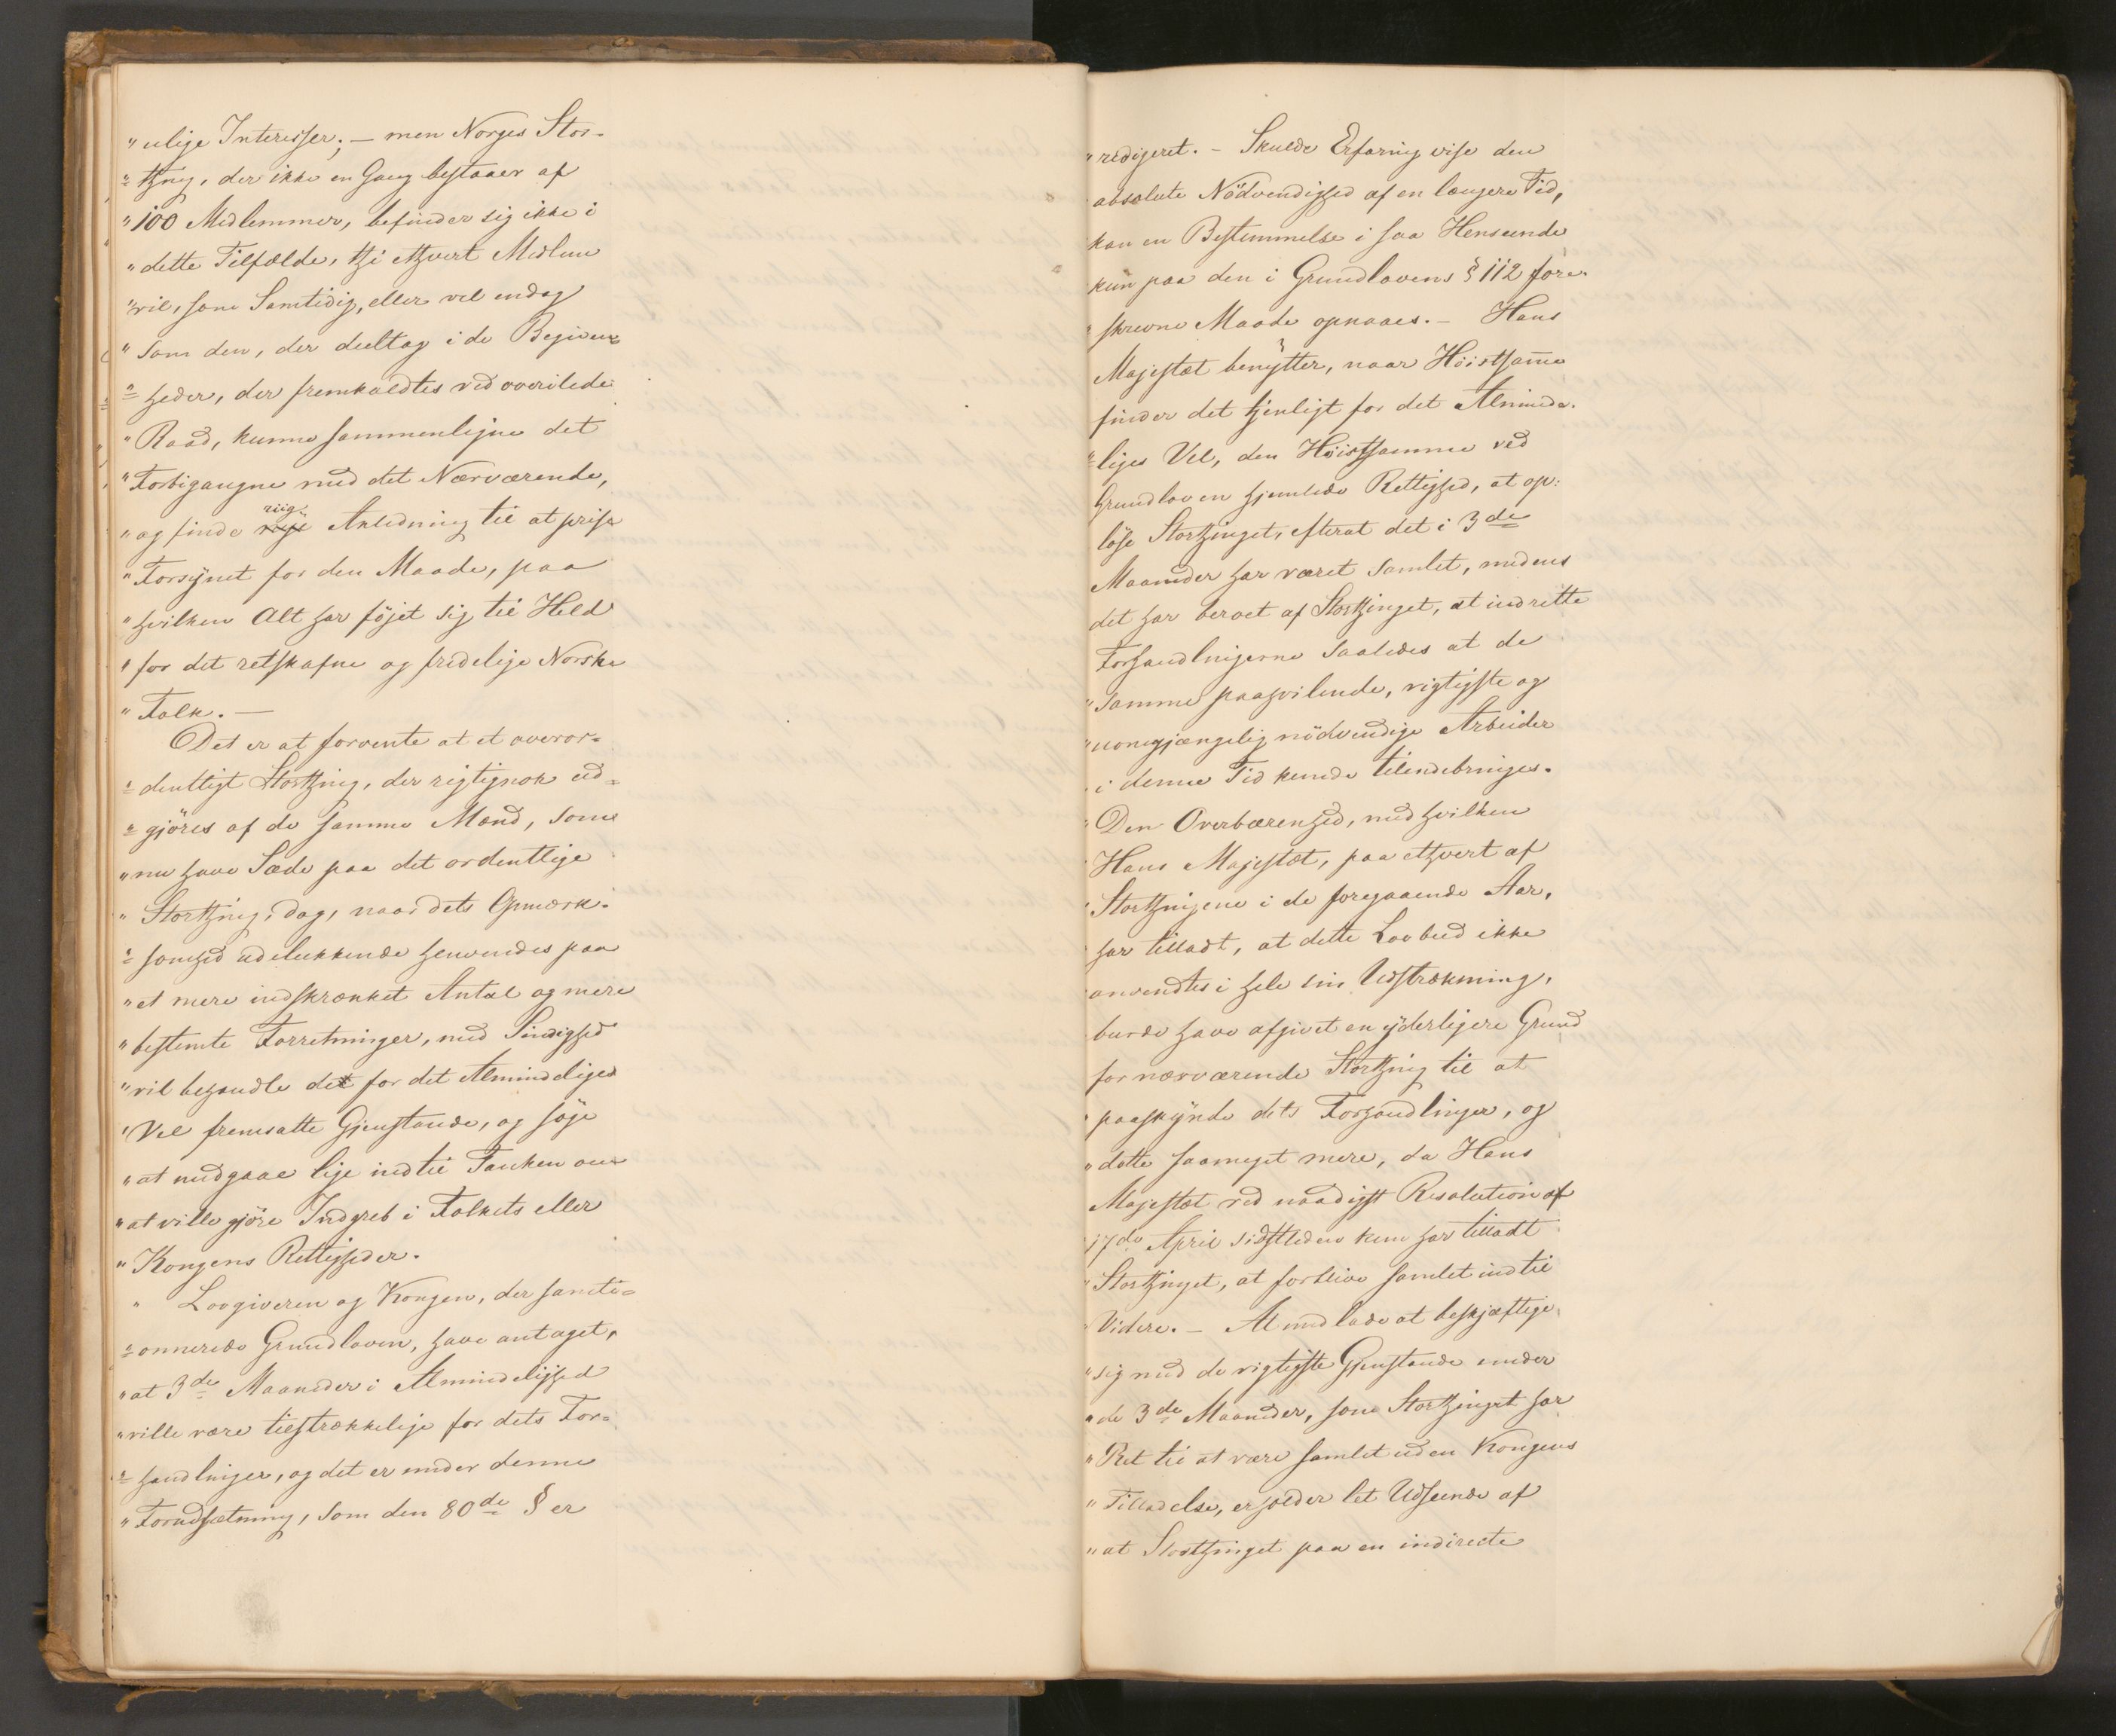 " ulige Interesser; — men Norges Stor-
" thing, der ikke en Gang bestaaer af
" 100 Medlemmer, befinder sig ikke i
" dette Tilfælde, thi ethvert Medlem
" vil, som Samtidig, eller vel endog
" som den, der deeltog i de Begiven-
= heder, der fremkaldtes ved overilede
" Raad, kunne sammenligne det
" Forbigangne med det Nærværende,
" og finde riig Anledning til at prise
" Forsynet for den Maade, paa
" hvilken Alt har föjet sig til Held
" for det retskafne og fredelige Norske
" Folk. —
Det er at forvente at et overor-
= dentligt Storthing, der rigtignok ud-
= gjöres af de samme Mænd, som
" nu have Sæde paa det ordentlige
" Storthing, dog, naar dets Opmærk-
= somhed udelukkende henvendes paa
" et mere indskrænket Antal og mere
" bestemte Forretninger, med Sindighed
" vil behandle det for det Almindelige
" Vel fremsatte Gjenstande, og söge
" at undgaae lige indtil Tanken om
" at ville gjöre Indgreb i Folkets eller
" Kongens Rettigheder.
" Lovgiveren og Kongen, der sancti-
= onnerede Grundloven, have antaget,
" at 3de Maaneder i Almindelighed
" ville være tilstrækkelige for dets For-
= handlinger, og det er under denne
" Forudsætning, som den 80de § er
" redigeret. – Skulde Erfaring vise den
" absolute Nödvendighed af en længere Tid,
" kan en Bestemmelse i saa Henseende
" kun paa den i Grundlovens § 112 fore-
" skrevne Maade opnaaes. – Hans
Majestæt benytter, naar Höistsamme
finder det tjenligt for det Alminde-
= liges Vel, den Höistsamme ved
Grundloven hjemlede Rettighed, at op-
löse Storthinget, efterat det i 3de
Maaneder har været samlet, medens
det har beroet af Storthinget, at indrette
Forhandlingerne saaledes at de
" samme paahvilende, rigtigste og
" uomgjængelig nödvendige Arbeider
" i denne Tid kunde tilendebringes.
" Den Overbærenhed, med hvilken
" Hans Majestæt, paa ethvert af
" Storthingene i de foregaaende Aar,
" har tilladt, at dette Lovbud ikke
" anvendtes i hele sin Udstrækning,
" burde have afgivet en yderligere Grund
" for nærværende Storthing til at
" paaskynde dets Forhandlinger, og
" dette saameget mere, da Hans
Majestæt ved naadigst Resolution af
" 17de April sidstleden kun har tilladt
" Storthinget, at forblive samlet indtil
" Videre. – At undlade at beskjæftige
" sig med de rigtigste Gjenstande under
" de 3de Maaneder, som Storthinget har
" Ret til at være samlet uden Kongens
" Tilladelse, erholder let Udseende af
" at Storthinget paa en indirecte